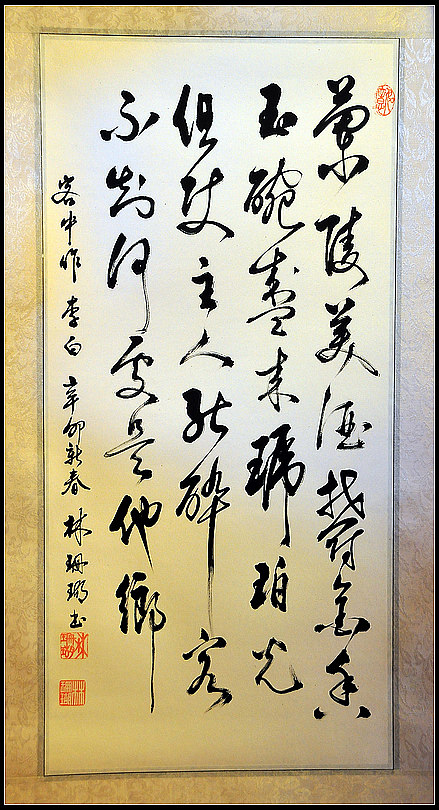 蘭陵美酒鬱金香
玉碗盛來琥珀光
但使主人能醉客
不知何處是他鄉
客中作 李白 辛卯新春 林珊瑚书